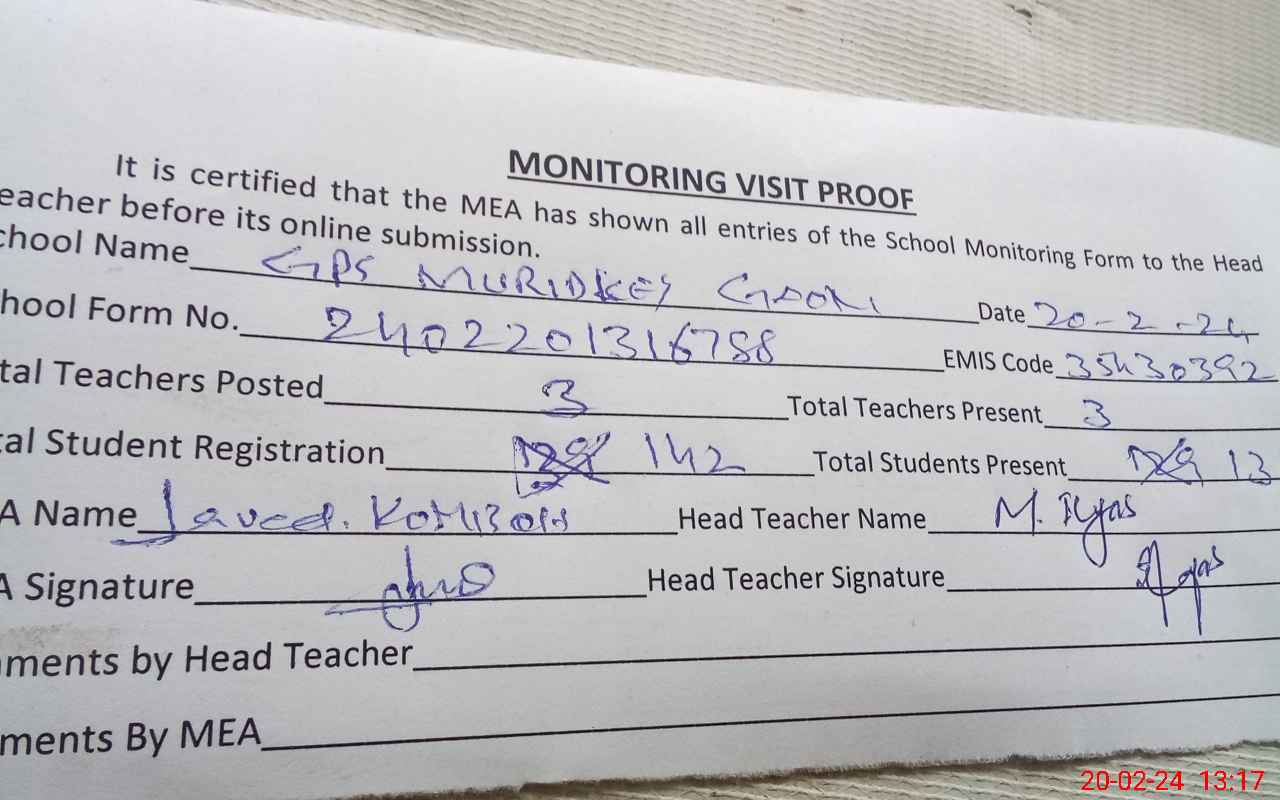 MONITORING VISIT PROOF
It is certified that the MEA has shown all entries of the School Monitoring Form to the Head
eacher before its online submission.
chool Name GPS MURIDKEY Date 20-2-24
hool Form No. 2402201316788 EMIS Code 35430392
tal Teachers Posted 3 Total Teachers Present 3
al Student Registration 142 Total Students Present 13
A Name Javed. Head Teacher Name M. Ilyas
A Signature Head Teacher Signature Ilyas
ments by Head Teacher
ments By MEA
20-02-24 13:17